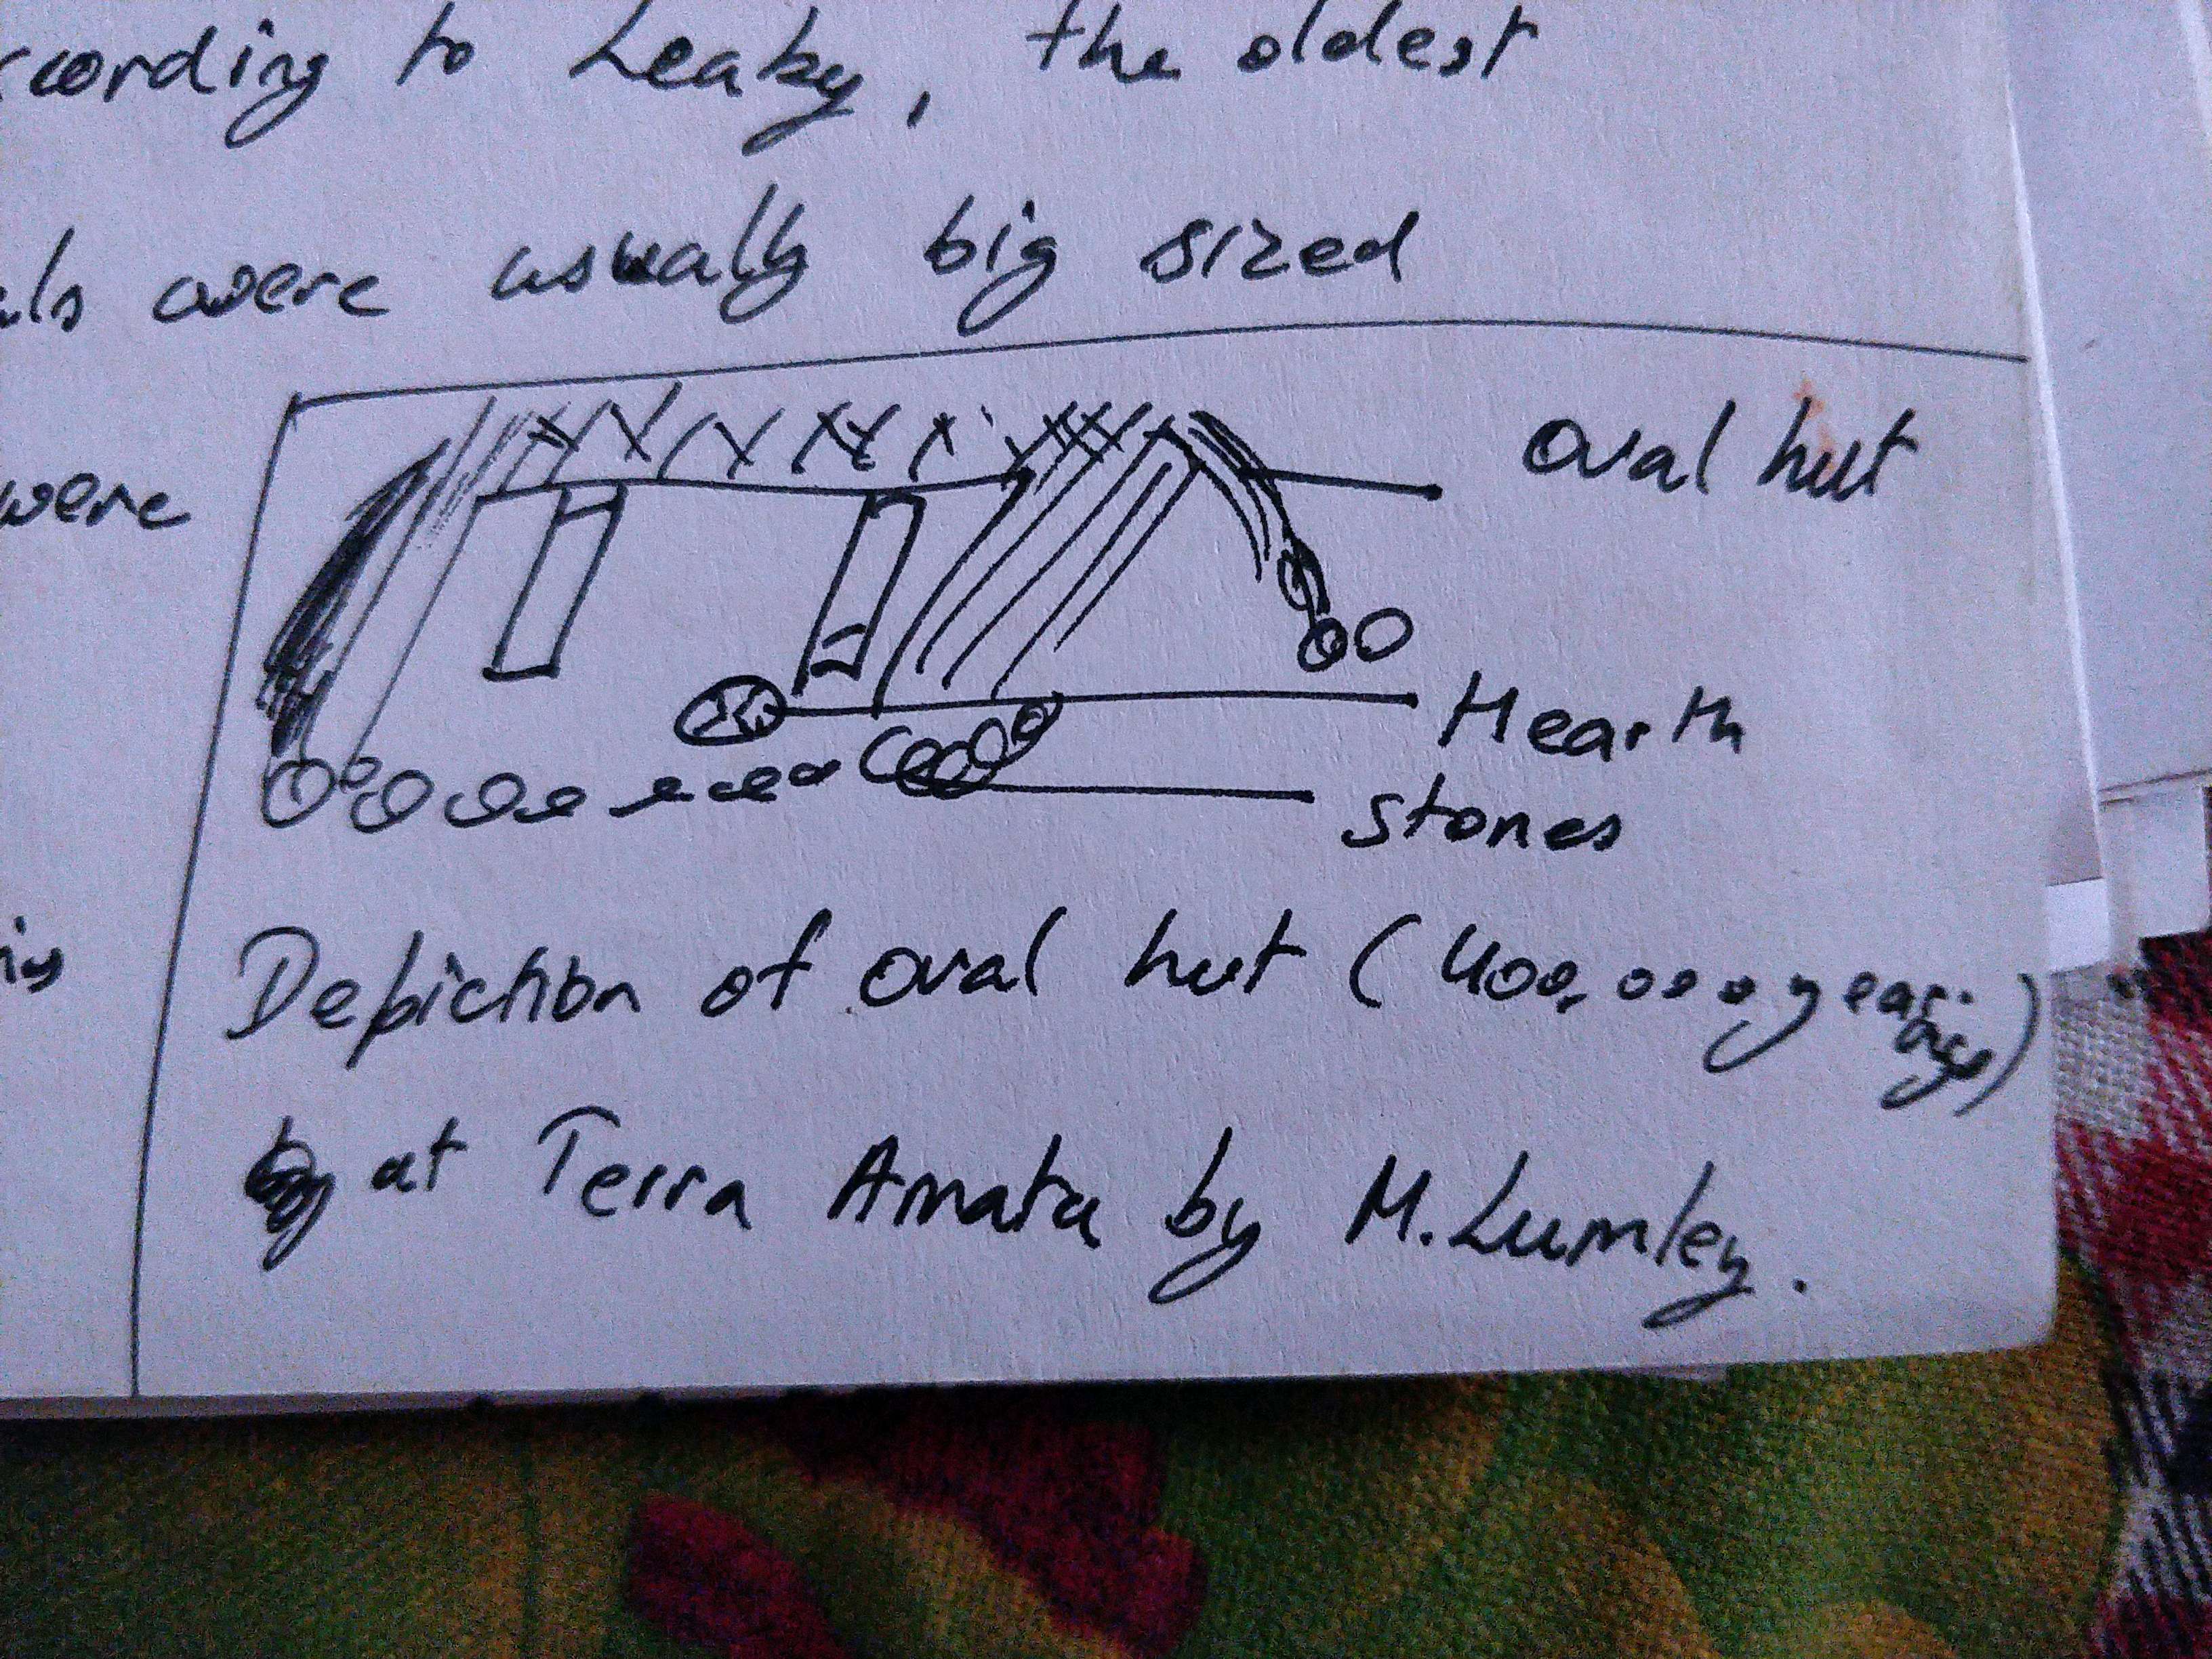 ccording to Leaky, the oldest
els were usually big sized
were
Oval hut
Hearth
stones
Depiction of oval hut (400,000 years
ago)
at Terra Amata by M. Lumley.